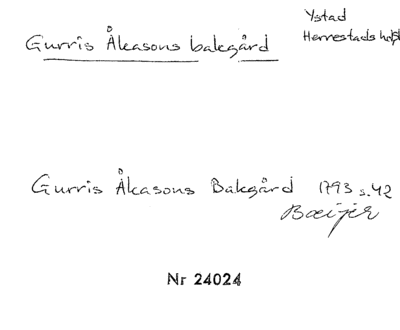 Gurris Åkasons bakgård
Ystad
Herrestads hd
Gurris Åkasons Bakgård 1793 s. 42
Boeijer
Nr 24024